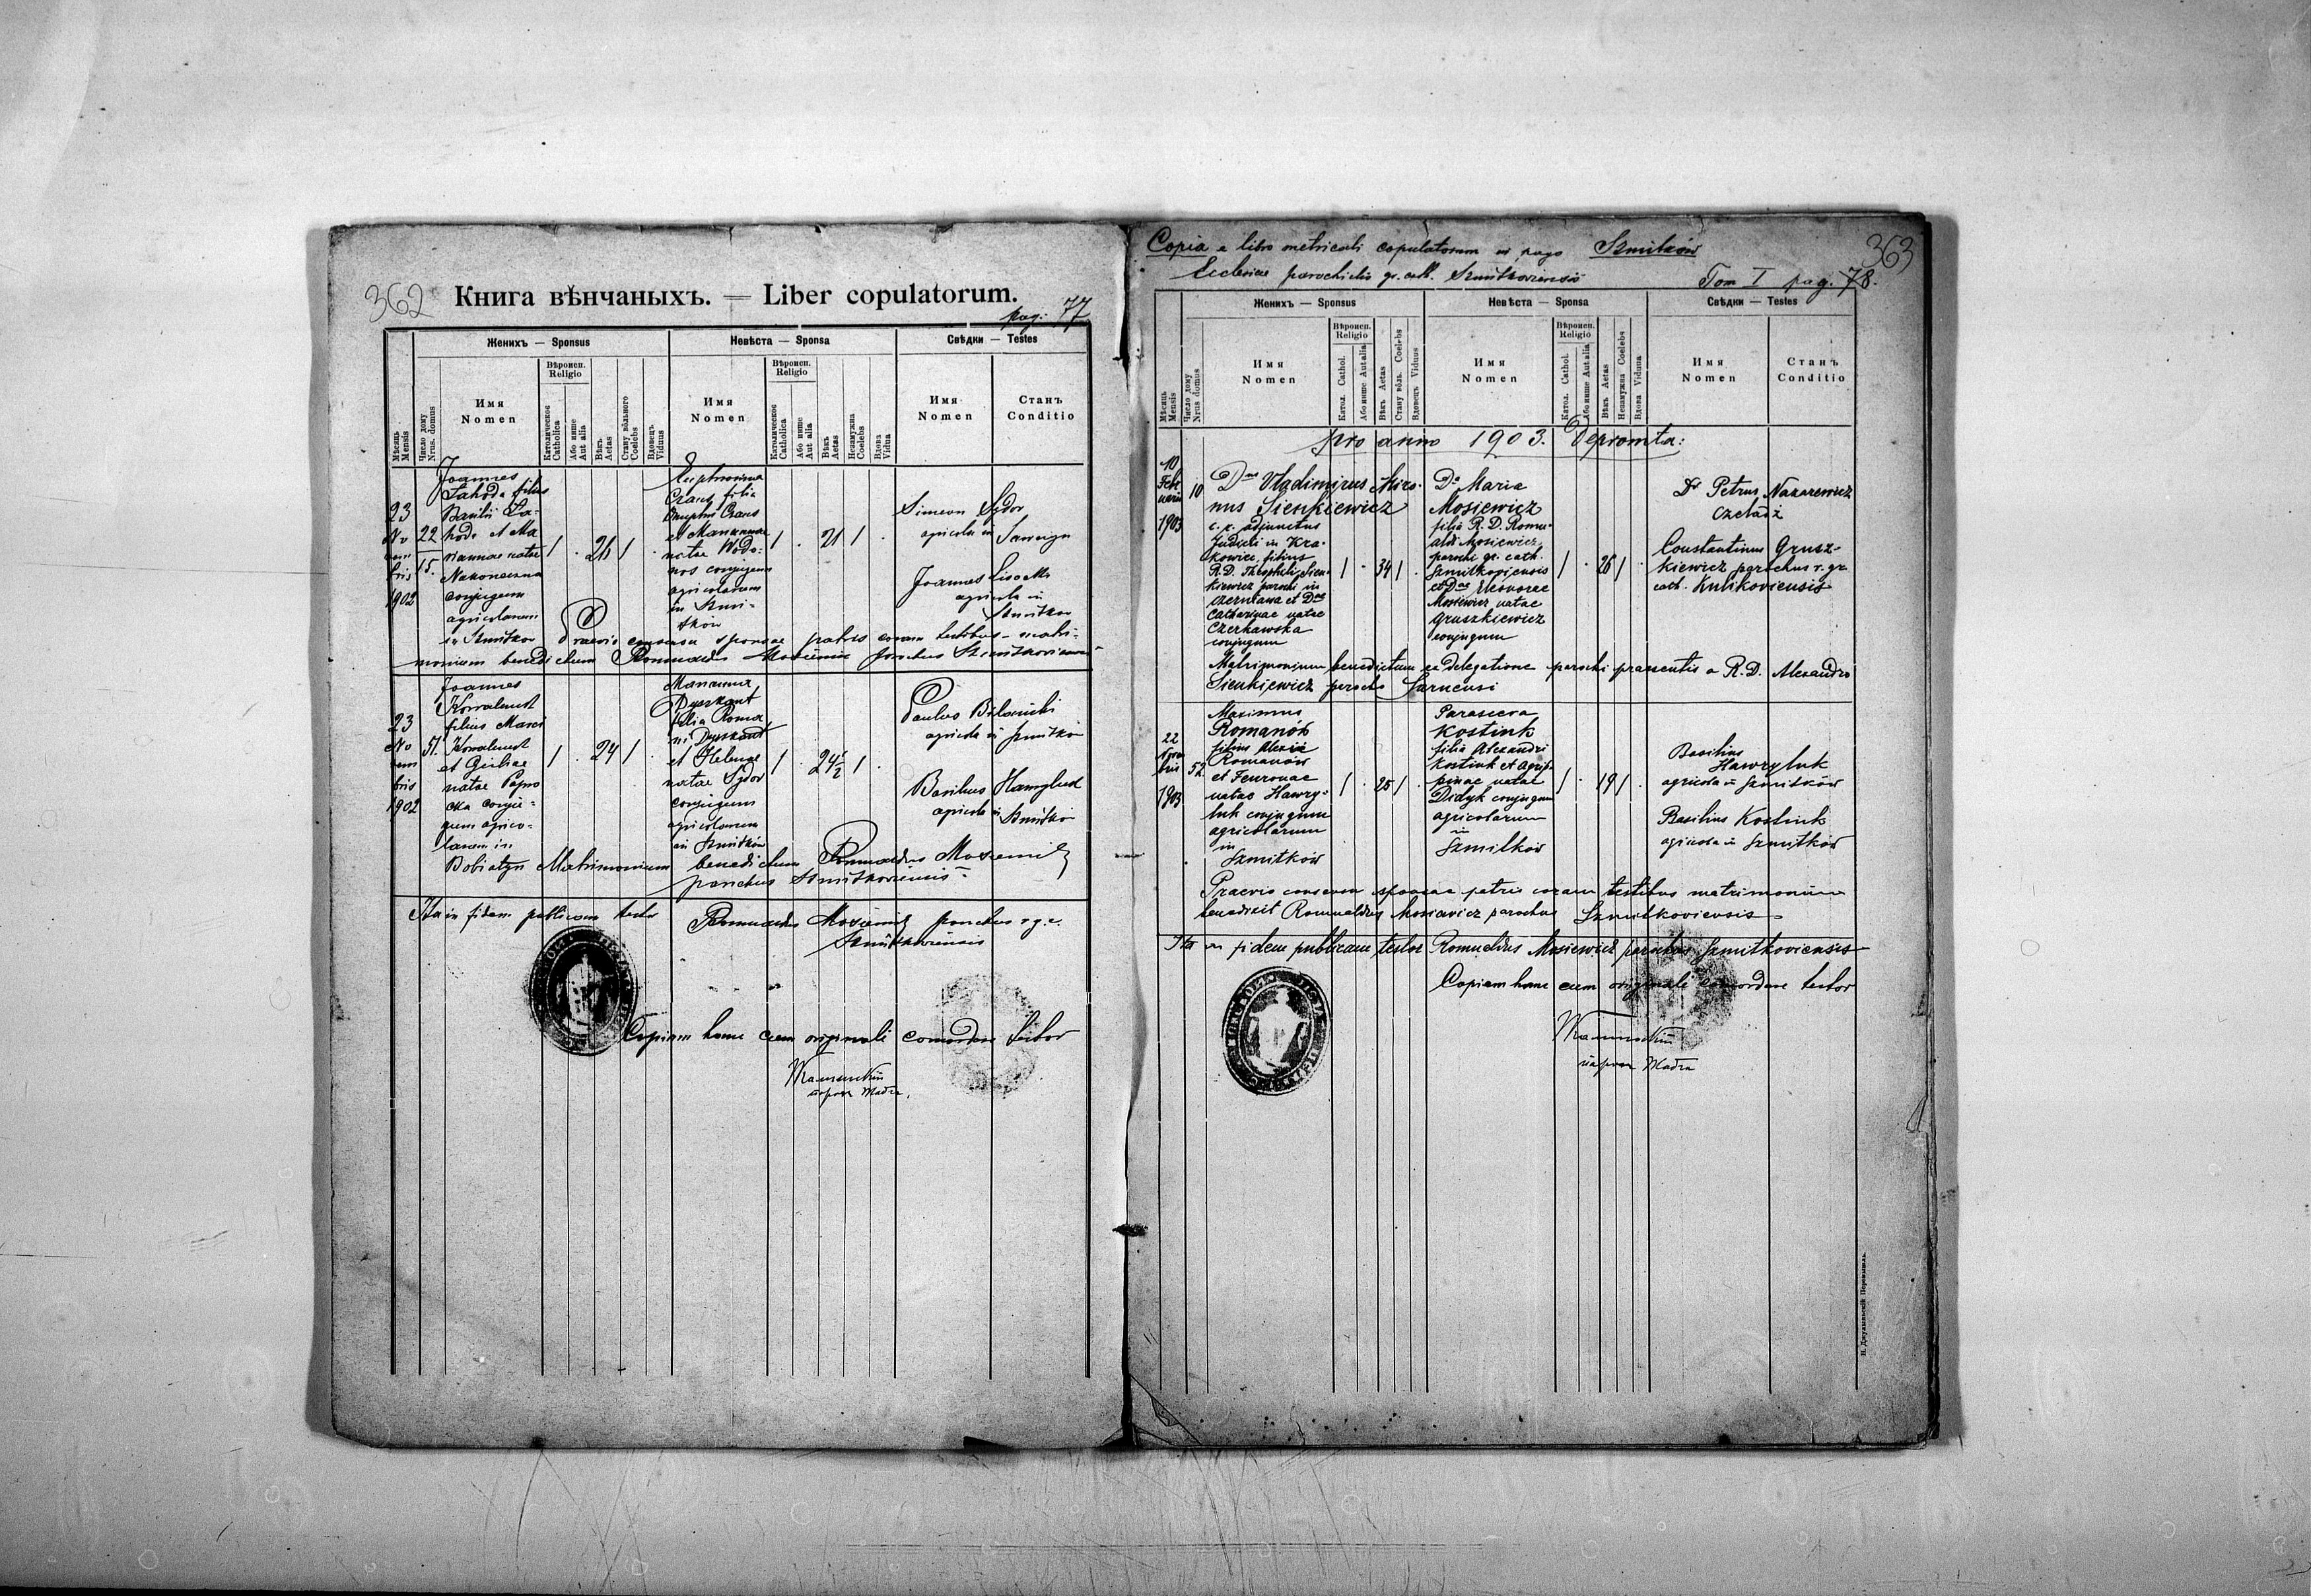 362
Книга вѣнчаныхъ. — Liber copulatorum.
pag. 77
Женихъ — Sponsus
Невѣста — Sponsa
Свѣдки — Testes
Мѣсяць Mensis
Число дому Nrus. domus
Имя
Nomen
Вѣроисп.
Religio
Католическое Catholica
Або инше Aut alia
Вѣкъ Aetas
Стану вôльного Coelebs
Вдовець Viduus
Имя
Nomen
Вѣроисп.
Religio
Католическое Catholica
Або инше Aut alia
Вѣкъ Aetas
Незамужна Coelebs
Вдова Vidua
Имя
Nomen
Станъ
Conditio
23
No
vem
bris
1902
22
15.
Joannes
Lahoda filius
Basilii La-
hoda et Ma
riannae natae
Nakoneczna
conjugum
agricolarum
in Szmitkow
26
Euphrosina
Czaus filia
Onuphri Czaus
et Mariannae
natae Wodo-
nos conjugum
agricolarum
in Szmi-
tków
21
Simeon Sydor
agricola in
Joannes
agricola in
Szmitkow
Praevio consensu sponsae patris coram testibus matri-
monium benedictum Romualdus Mosiewicz parochus Szmitkoviensis
23
No
vem
bris
1902
51.
Joannes
Kowaluk
filius Marci
Kowaluk
et
natae
conju-
gum agrico-
larum in
Bobiatyn
24
Marianna
Dyszkant
filia Roma
ni Dyszkant
et Helenae
natae Sydor
conjugum
agricolarum
in Szmitków
24 1/2
Paulus Bilanicki
agricola in Szmitkow
Basilius Hawryluk
agricola in Szmitkow
Matrimonium benedictum Romualdus Mosiewicz
parochus Szmitkoviensis
Ita in fidem publicam testor Romualdus Mosiewicz parochus r. g. c.
Szmitkoviensis
Copiam hanc cum originali concordare testor
363
Copia e libro metricali copulatorum in pago Szmitków
Ecclesiae parochialis gr. cath. Szmitkoviensis
Tom I pag. 78.
Женихъ — Sponsus
Невѣста — Sponsa
Свѣдки — Testes
Мѣсяць Mensis
Число дому Nrus domus
Имя
Nomen
Вѣроисп.
Religio
Катол. Cathol.
Або инше Aut alia
Вѣкъ Aetas
Стану вôль. Coelebs
Вдовець Viduus
Имя
Nomen
Вѣроисп.
Religio
Катол. Cathol.
Або инше Aut alia
Вѣкъ Aetas
Незамужна Coelebs
Вдова Vidua
Имя
Nomen
Станъ
Conditio
pro anno 1903. Depromta:
10
Feb
ruarii
1903
10
Dnus Vladimirus Miro-
nus Sienkiewicz
c. r. adjunctus
Judicii in Kra-
kowiec, filius
R. D. Theophili Sien-
kiewicz parochi in
Czerniawa et Dnae
Catharinae natae
Czerkawska
conjugum
34
Da Maria
Mosiewicz
filia R. D. Romu-
aldi Mosiewicz
parochi gr. cath.
Szmitkoviensis
et Dnae Eleonorae
Mosiewicz natae
Gruszkiewicz
conjugum
26
Dr Petrus Nazarewicz
Czeladź
Constantinus Grusz-
kiewicz parochus r. gr.
cath. Kulikoviensis
Matrimonium benedictum ex delegatione parochi praesentis a R. D. Alexandro
Sienkiewicz parocho Sarnensi
22
Nove
bris
1903
52
Maximus
Romanów
filius Alexii
Romanów
et Feuronae
natae Hawry-
luk conjugum
agricolarum
in
Szmitków
25
Parasceva
Kostiuk
filia Alexandri
Kostiuk et Agrip
pinae natae
Didyk conjugum
agricolarum
in
Szmitków
19
Basilius
Hawryluk
agricola in Szmitków
Basilius Kostiuk
agricola in Szmitków
Praevio consensu sponsae patris coram testibus matrimonium
benedixit Romualdus Mosiewicz parochus Szmitkoviensis
Ita in fidem publicam testor Romualdus Mosiewicz parochus Szmitkoviensis
Copiam hanc cum originali concordare testor
Н. Джулыньскій Перемышль.